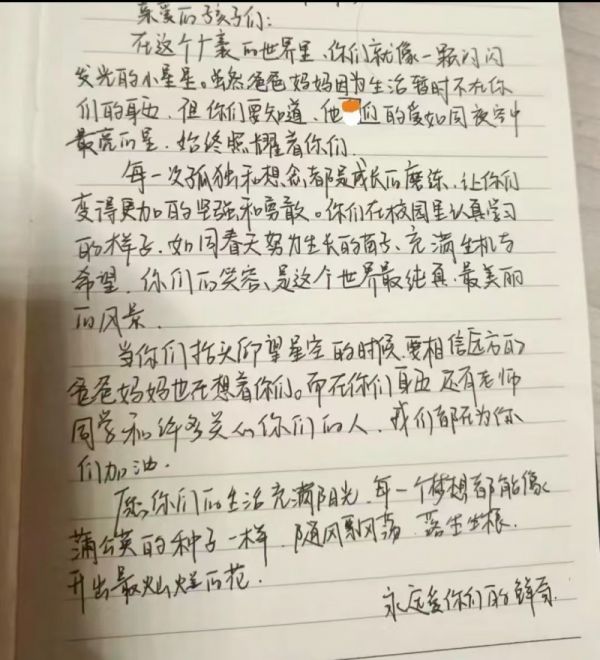 亲爱的孩子们:
在这个广袤的世界里,你们就像一颗闪闪
发光的小星星。虽然爸爸妈妈因为生活暂时不在你
们的身边,但你们要知道,他们的爱如同夜空中
最亮的星,始终照耀着你们.
每一次孤独和想念都是成长的磨练,让你们
变得更加的坚强和勇敢。你们在校园里认真学习
的样子,如同春天努力生长的苗子、充满生机与
希望,你们的笑容、是这个世界最纯真、最美丽
的风景.
当你们抬头仰望星空的时候,要相信远方的
爸爸妈妈也在想着你们。而在你们身边还有老师
同学和许多关心你们的人,我们都在为你
们加油.
愿你们的生活充满阳光,每一个梦想都能像
蒲公英的种子一样,随风飘荡,落生生根.
开出最灿烂的花.
永远爱你们的